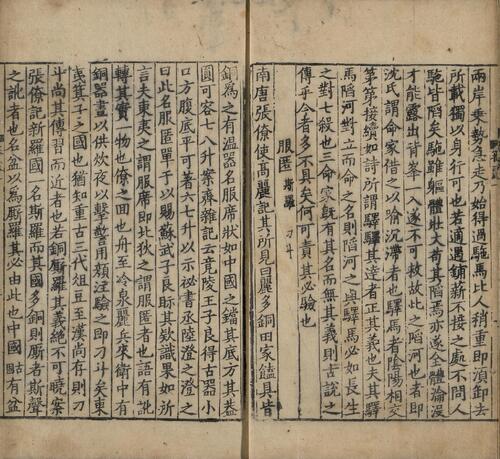 兩岸乗勢急走乃始得過駞馬比人稍重即湏卸去
所載獨以身行可也若適遇鋪薪不接之處不問人
駞皆䧟矣駞雖軀體壯大苟其䧟焉亦遂全體淪沒
才能露出背峯一入遂不可救故此之䧟河也者即
沈氏謂命家借之以踰沉滯者也驛馬者陰陽相交
第第接續如詩所謂驛驛其達者正其義也夫其驛
馬䧟河之對立而命之名則䧟河之與驛馬必如長生
之對七殺也三命家旣有其名而無其義則古說之
傳乎今者多不具矣何可責其必驗也
服匿 斯羅 刁斗
南唐張僚使高麗記其所見曰麗多銅田家饁具皆
銅為之有溫器名服席狀如中國之鐺其底方其蓋
圓可容七八升案齊雜記云竟陵王子良得古器小
口方腹底平可著六七升以示祕書丞陸澄之澄之
曰此名服匿單于以賜蘇武子良眎其欵識果如所
言夫東夷之謂服席即比狄之謂服匿者也語有訛
轉其實一物也僚之回也舟至冷泉麗兵来衛中有
銅器晝以供炊夜以擊警用頰注驗之即刁斗矣東
夷箕子之國也猶知重古三代俎豆至漢尚存則刁
斗尚其傳習而近者也若銅廝羅其義絶不可曉案
張僚記新羅國一名斯羅而其國多銅則廝者斯聲
之訛者也名盆以為廝羅其必由此也中國古固有盆